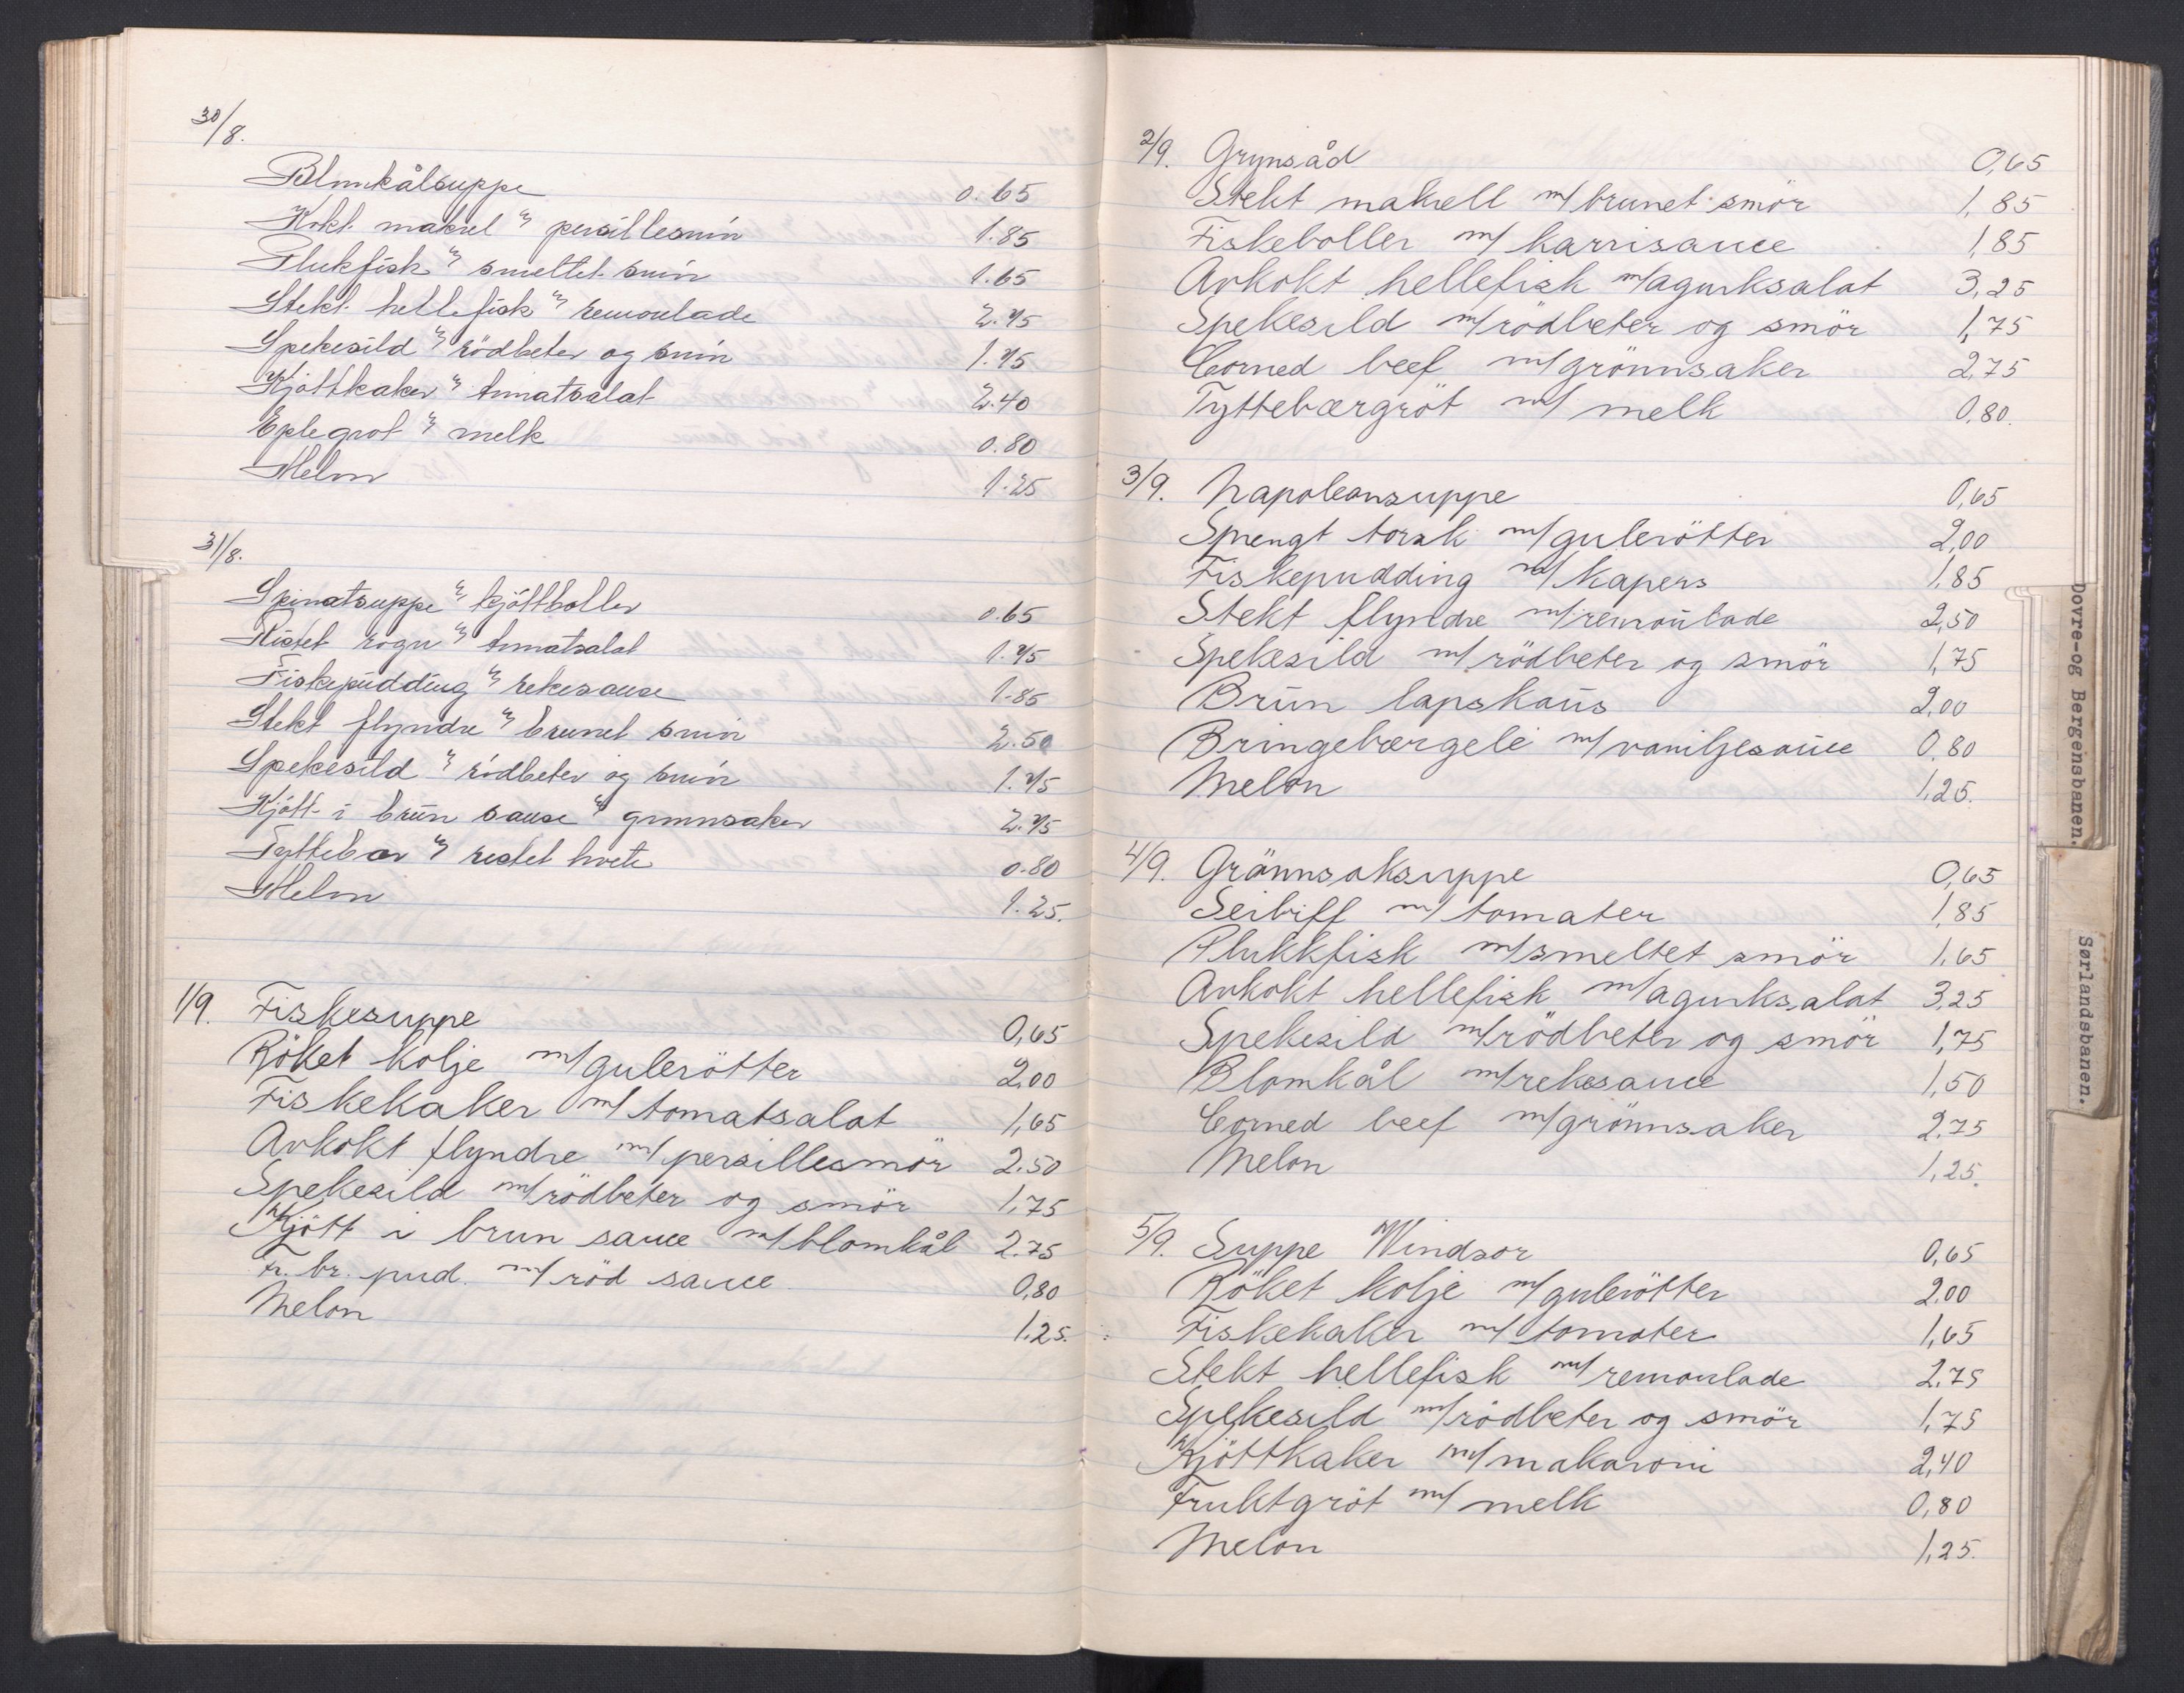 30/8.
Blomkålsuppe 0.65
Kokt makrel m/ persillesmör 1.85
Plukfisk m/ smeltet smör 1.65
Stekt hellefisk m/ remoulade 2.75
Spekesild m/ rödbeter og smör 1.75
Kjöttkaker m/ tomatsalat 2.40
Eplegröt m/ melk 0.80
Melon 1.25
31/8.
Spinatsuppe m/ kjöttboller 0.65
Ristet rogn m/ tomatsalat 1.75
Fiskepudding m/ rekesause 1.85
Stekt flyndre m/ brunet smör 2.50
Spekesild m/ rödbeter og smör 1.75
Kjött i brun sause m/ grönnsaker 2.75
Tyttebær m/ ristet hvete 0.80
Melon 1.25.
1/9. Fiskesuppe 0,65
Röket kolje m/ gulerötter 2,00
Fiskekaker m/ tomatsalat 1,65
Avkokt flyndre m/ persillesmör 2.50
Spekesild m/ rödbeter og smör 1,75
Kjött i brun sauce m/ blomkål 2.75
Fr. br. pud. m/ röd sauce 0,80
Melon 1.25.
2/9. Grynsåd 0,65
Stekt makrell m/ brunet smör 1,85
Fiskeboller m/ karrisauce 1,85
Avkokt hellefisk m/ agurksalat 3,25
Spekesild m/ rödbeter og smör 1,75
Corned beef m/ grönnsaker 2,75
Tyttebærgröt m/ melk 0,80.
3/9. Napoleonsuppe 0,65
Sprengt torsk m/ gulerötter 2,00
Fiskepudding m/ kapers 1,85
Stekt flyndre m/ remoulade 2,50
Spekesild m/ rödbeter og smör 1,75
Brun lapskaus 2,00
Bringebærgele m/ vaniljesauce 0,80
Melon 1,25.
4/9. Grönnsaksuppe 0,65
Seibiff m/ tomater 1,85
Plukkfisk m/ smeltet smör 1,65
Avkokt hellefisk m/ agurksalat 3,25
Spekesild m/ rödbeter og smör 1,75
Blomkål m/ rekesauce 1,50
Corned beef m/ grönnsaker 2.75
Melon 1,25.
5/9. Suppe Windsor 0,65
Röket kolje m/ gulerötter 2.00
Fiskekaker m/ tomater 1,65
Stekt hellefisk m/ remoulade 2.75
Spekesild m/ rödbeter og smör 1,75
Kjöttkaker m/ makaroni 2,40
Fruktgröt m/ melk 0,80
Melon 1,25.
Dovre-og Bergensbanen.
Sørlandsbanen.